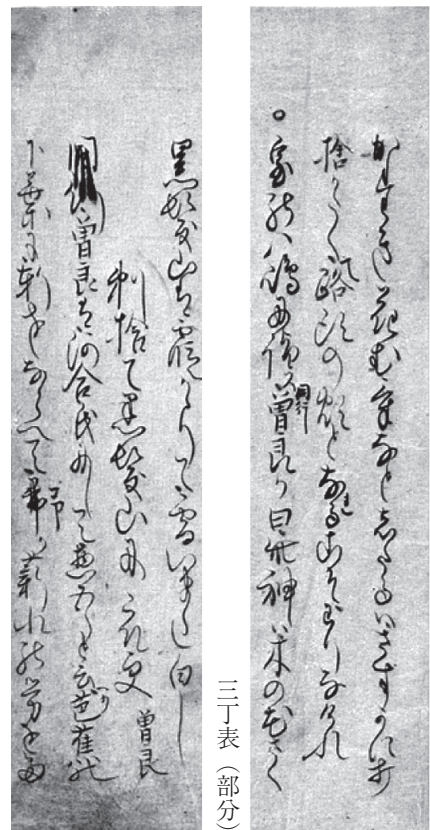 かたき花むけなとしたるハさすかに打
捨かたく路頭の煩となれるこそわりなけれ
○室の八嶋に詣ス同行曽良か曰此神ハ木の花さく
黒髪山は霞かゝりて雪いまた白し
剃捨て黒髪山に衣更 曽良
曽良は河合氏にして惣五郎と云芭蕉の
下葉に軒をならへて予か薪水の労をた
三丁表（部分）